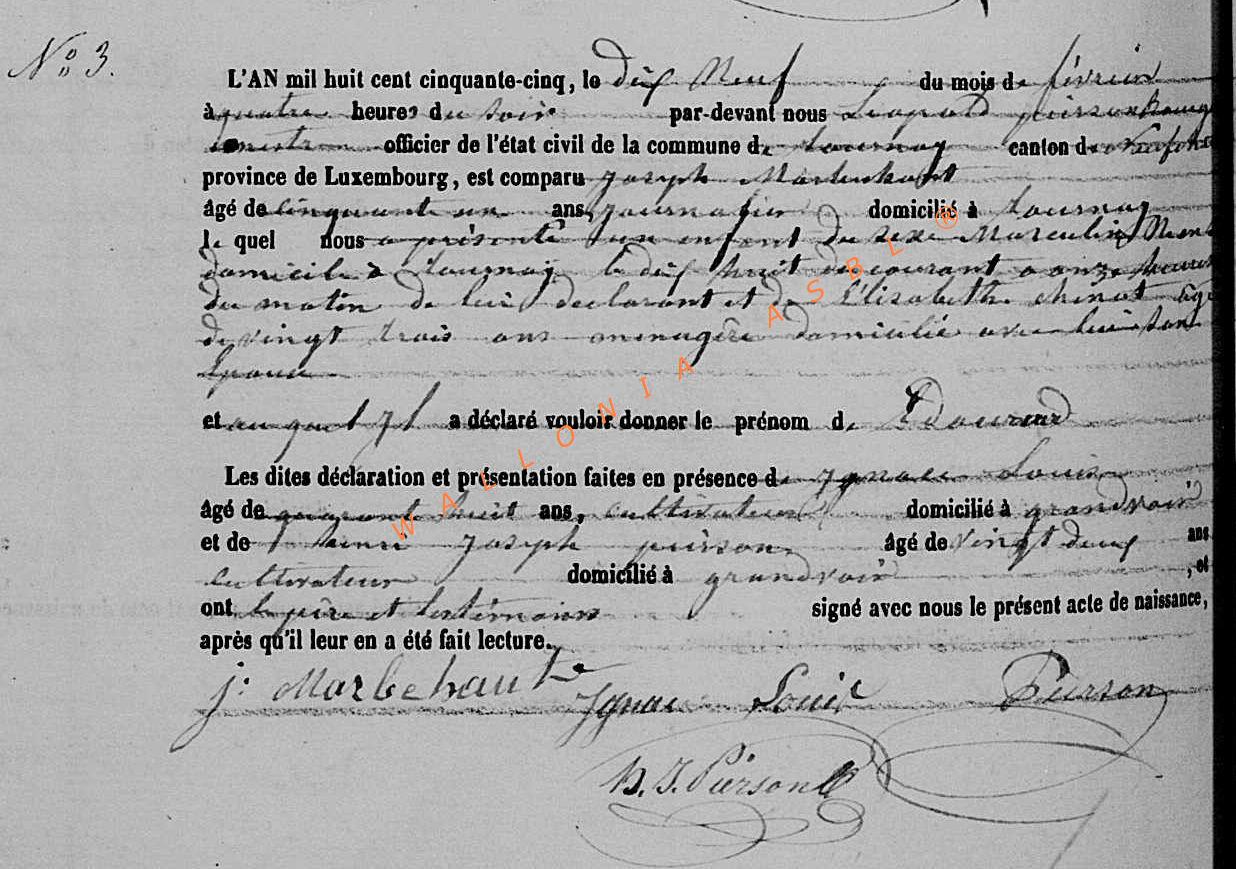 N° 3.
L'AN mil huit cent cinquante-cinq, le dix Neuf du mois de février
à quatre heures du soir par-devant nous Léopold pierson Bourg
mestre officier de l'état civil de la commune de tournay canton de
province de Luxembourg, est comparu Joseph Marbehant
âgé de cinquante un ans, journalier domicilié à tournay
le quel nous a présenté un enfant du sexe Masculin Né en
domicile à tournay le dix huit du courant a onze heures
du matin de lui déclarant et de Elisabeth chénot âgé
de vingt trois ans menagère domiciliée avec lui son
Epouse
et auquel il a déclaré vouloir donner le prénom de Edouard
Les dites déclaration et présentation faites en présence de Ignace Louis
âgé de quarant huit ans, cultivateur domicilié à grandvoir
et de henri Joseph pierson âgé de vingt deux ans
cultivateur domicilié à grandvoir , et
ont le père et les témoins signé avec nous le présent acte de naissance,
après qu'il leur en a été fait lecture.
j: Marbehant Ignace Louis Pierson
h. J. Pierson
WALLONIA ASBL ®